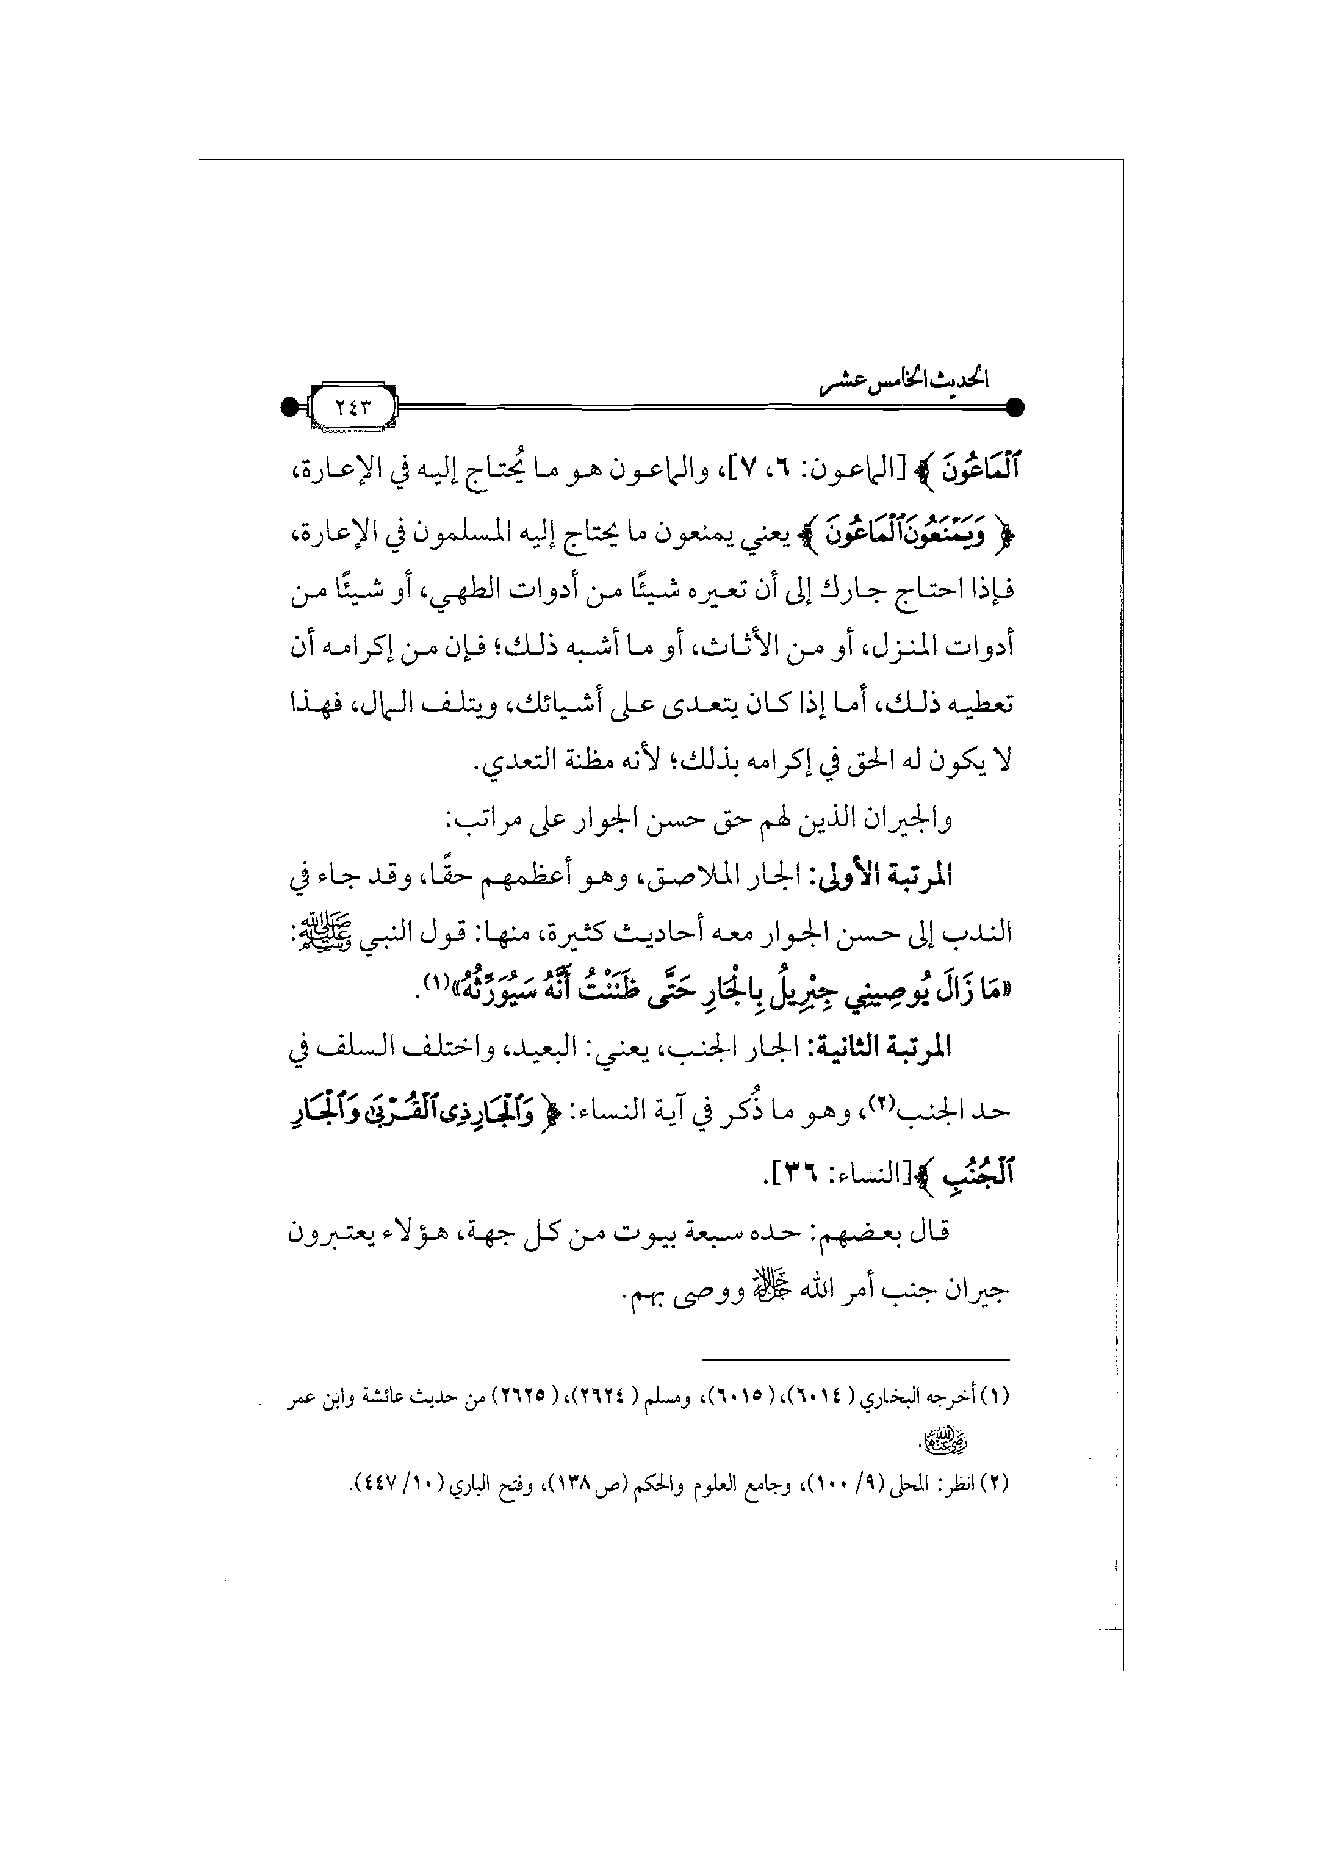 الحديث الخامس عشر
٢٤٣
ٱلۡمَاعُونَ ﴾ [الماعون: ٦، ٧]، والماعون هو ما يُحتاج إليه في الإعارة،
﴿ وَيَمۡنَعُونَ ٱلۡمَاعُونَ ﴾ يعني يمنعون ما يحتاج إليه المسلمون في الإعارة،
فإذا احتاج جارك إلى أن تعيره شيئًا من أدوات الطهي، أو شيئًا من
أدوات المنزل، أو من الأثاث، أو ما أشبه ذلك؛ فإن من إكرامه أن
تعطيه ذلك، أما إذا كان يتعدى على أشيائك، ويتلف المال، فهذا
لا يكون له الحق في إكرامه بذلك؛ لأنه مظنة التعدي.
والجيران الذين لهم حق حسن الجوار على مراتب:
المرتبة الأولى: الجار الملاصق، وهو أعظمهم حقًّا، وقد جاء في
الندب إلى حسن الجوار معه أحاديث كثيرة، منها: قول النبي ﷺ:
«مَا زَالَ يُوصِينِي جِبْرِيلُ بِالْجَارِ حَتَّى ظَنَنْتُ أَنَّهُ سَيُوَرِّثُهُ»(١).
المرتبة الثانية: الجار الجنب، يعني: البعيد، واختلف السلف في
حد الجنب(٢)، وهو ما ذُكر في آية النساء: ﴿ وَٱلۡجَارِ ذِى ٱلۡقُرۡبَىٰ وَٱلۡجَارِ
ٱلۡجُنُبِ ﴾[النساء: ٣٦].
قال بعضهم: حده سبعة بيوت من كل جهة، هؤلاء يعتبرون
جيران جنب أمر الله ﷻ ووصى بهم.
(١) أخرجه البخاري (٦٠١٤)، (٦٠١٥)، ومسلم (٢٦٢٤)، (٢٦٢٥) من حديث عائشة وابن عمر
رضي الله عنهما.
(٢) انظر: المحلى (٩/ ١٠٠)، وجامع العلوم والحكم (ص١٣٨)، وفتح الباري (١٠/ ٤٤٧).